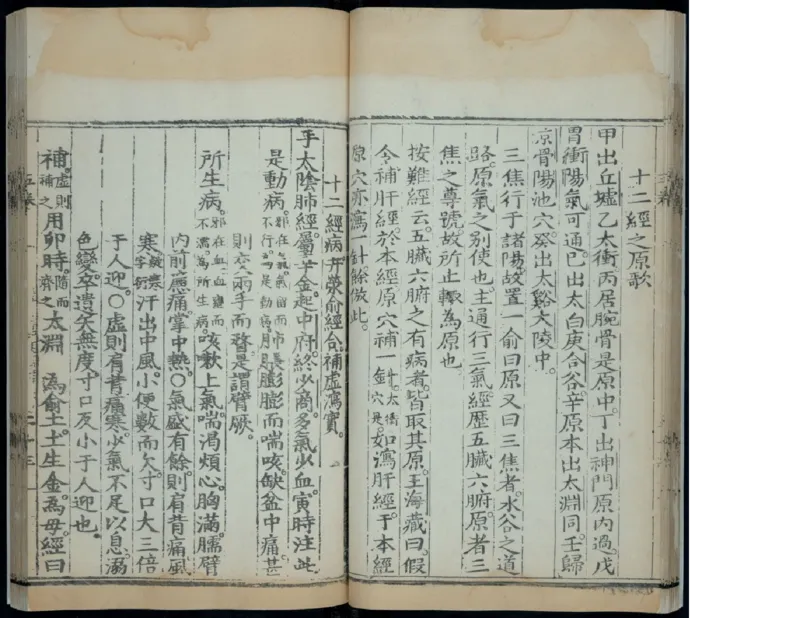 十二經之原歌
甲出丘墟乙太衝丙居腕骨是原中丁出神門原内過戊
胃衝陽氣可通巳出太白庚合谷辛原本出太淵同壬歸
凉骨陽池穴癸出太谿大陵中
三焦行于諸陽故置一俞曰原又曰三焦者水谷之道
路原氣之别使也主通行三氣經歷五臟六腑原者三
焦之尊號故所止輙為原也
按難經云五臟六腑之有病者皆取其原王海藏曰假
令補肝經於本經原穴補一針太衝穴是如瀉肝經于本經
原穴亦瀉一針餘倣此
十二經病井滎俞經合補虚瀉實
手太隂肺經屬辛金起中府終少商多氣少血寅時注此
是動病邪在氣氣留而不行為是動病肺脹膨膨而喘咳缺盆中痛甚
則交兩手而瞀是謂臂厥
所生病邪在血血壅而不濡為所生病咳嗽上氣喘渴煩心胸滿臑臂
内前廉痛掌中熱○氣盛有餘則肩背痛風
寒汗出中風小便數而欠寸口大三倍
于人迎○虚則肩背痛寒少氣不足以息溺
色變卒遺失無度寸口反小于人迎也
補虚則補之用卯時隨而濟之太淵 為俞土土生金為母經曰